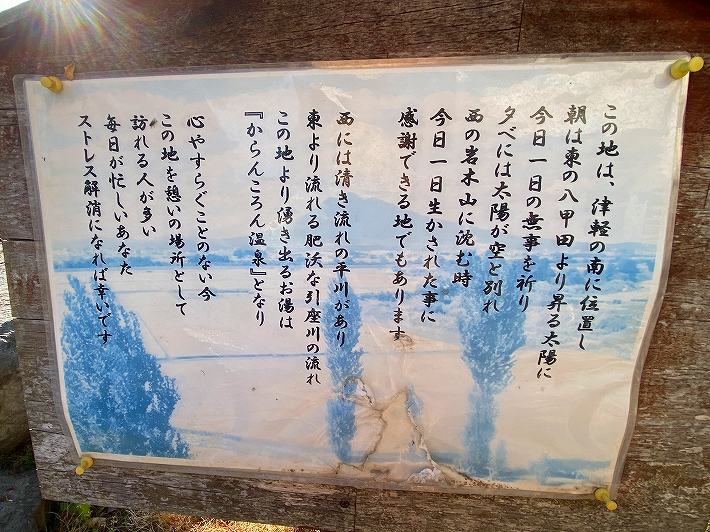 この地は、津軽の南に位置し
朝は東の八甲田より昇る太陽に
今日一日の無事を祈り
夕べには太陽が空と別れ
西の岩木山に沈む時
今日一日生かされた事に
感謝できる地でもあります
西には清き流れの平川があり
東より流れる肥沃な引座川の流れ
この地より湧き出るお湯は
『からんころん温泉』となり
心やすらぐことのない今
この地を憩いの場所として
訪れる人が多い
毎日が忙しいあなた
ストレス解消になれば幸いです